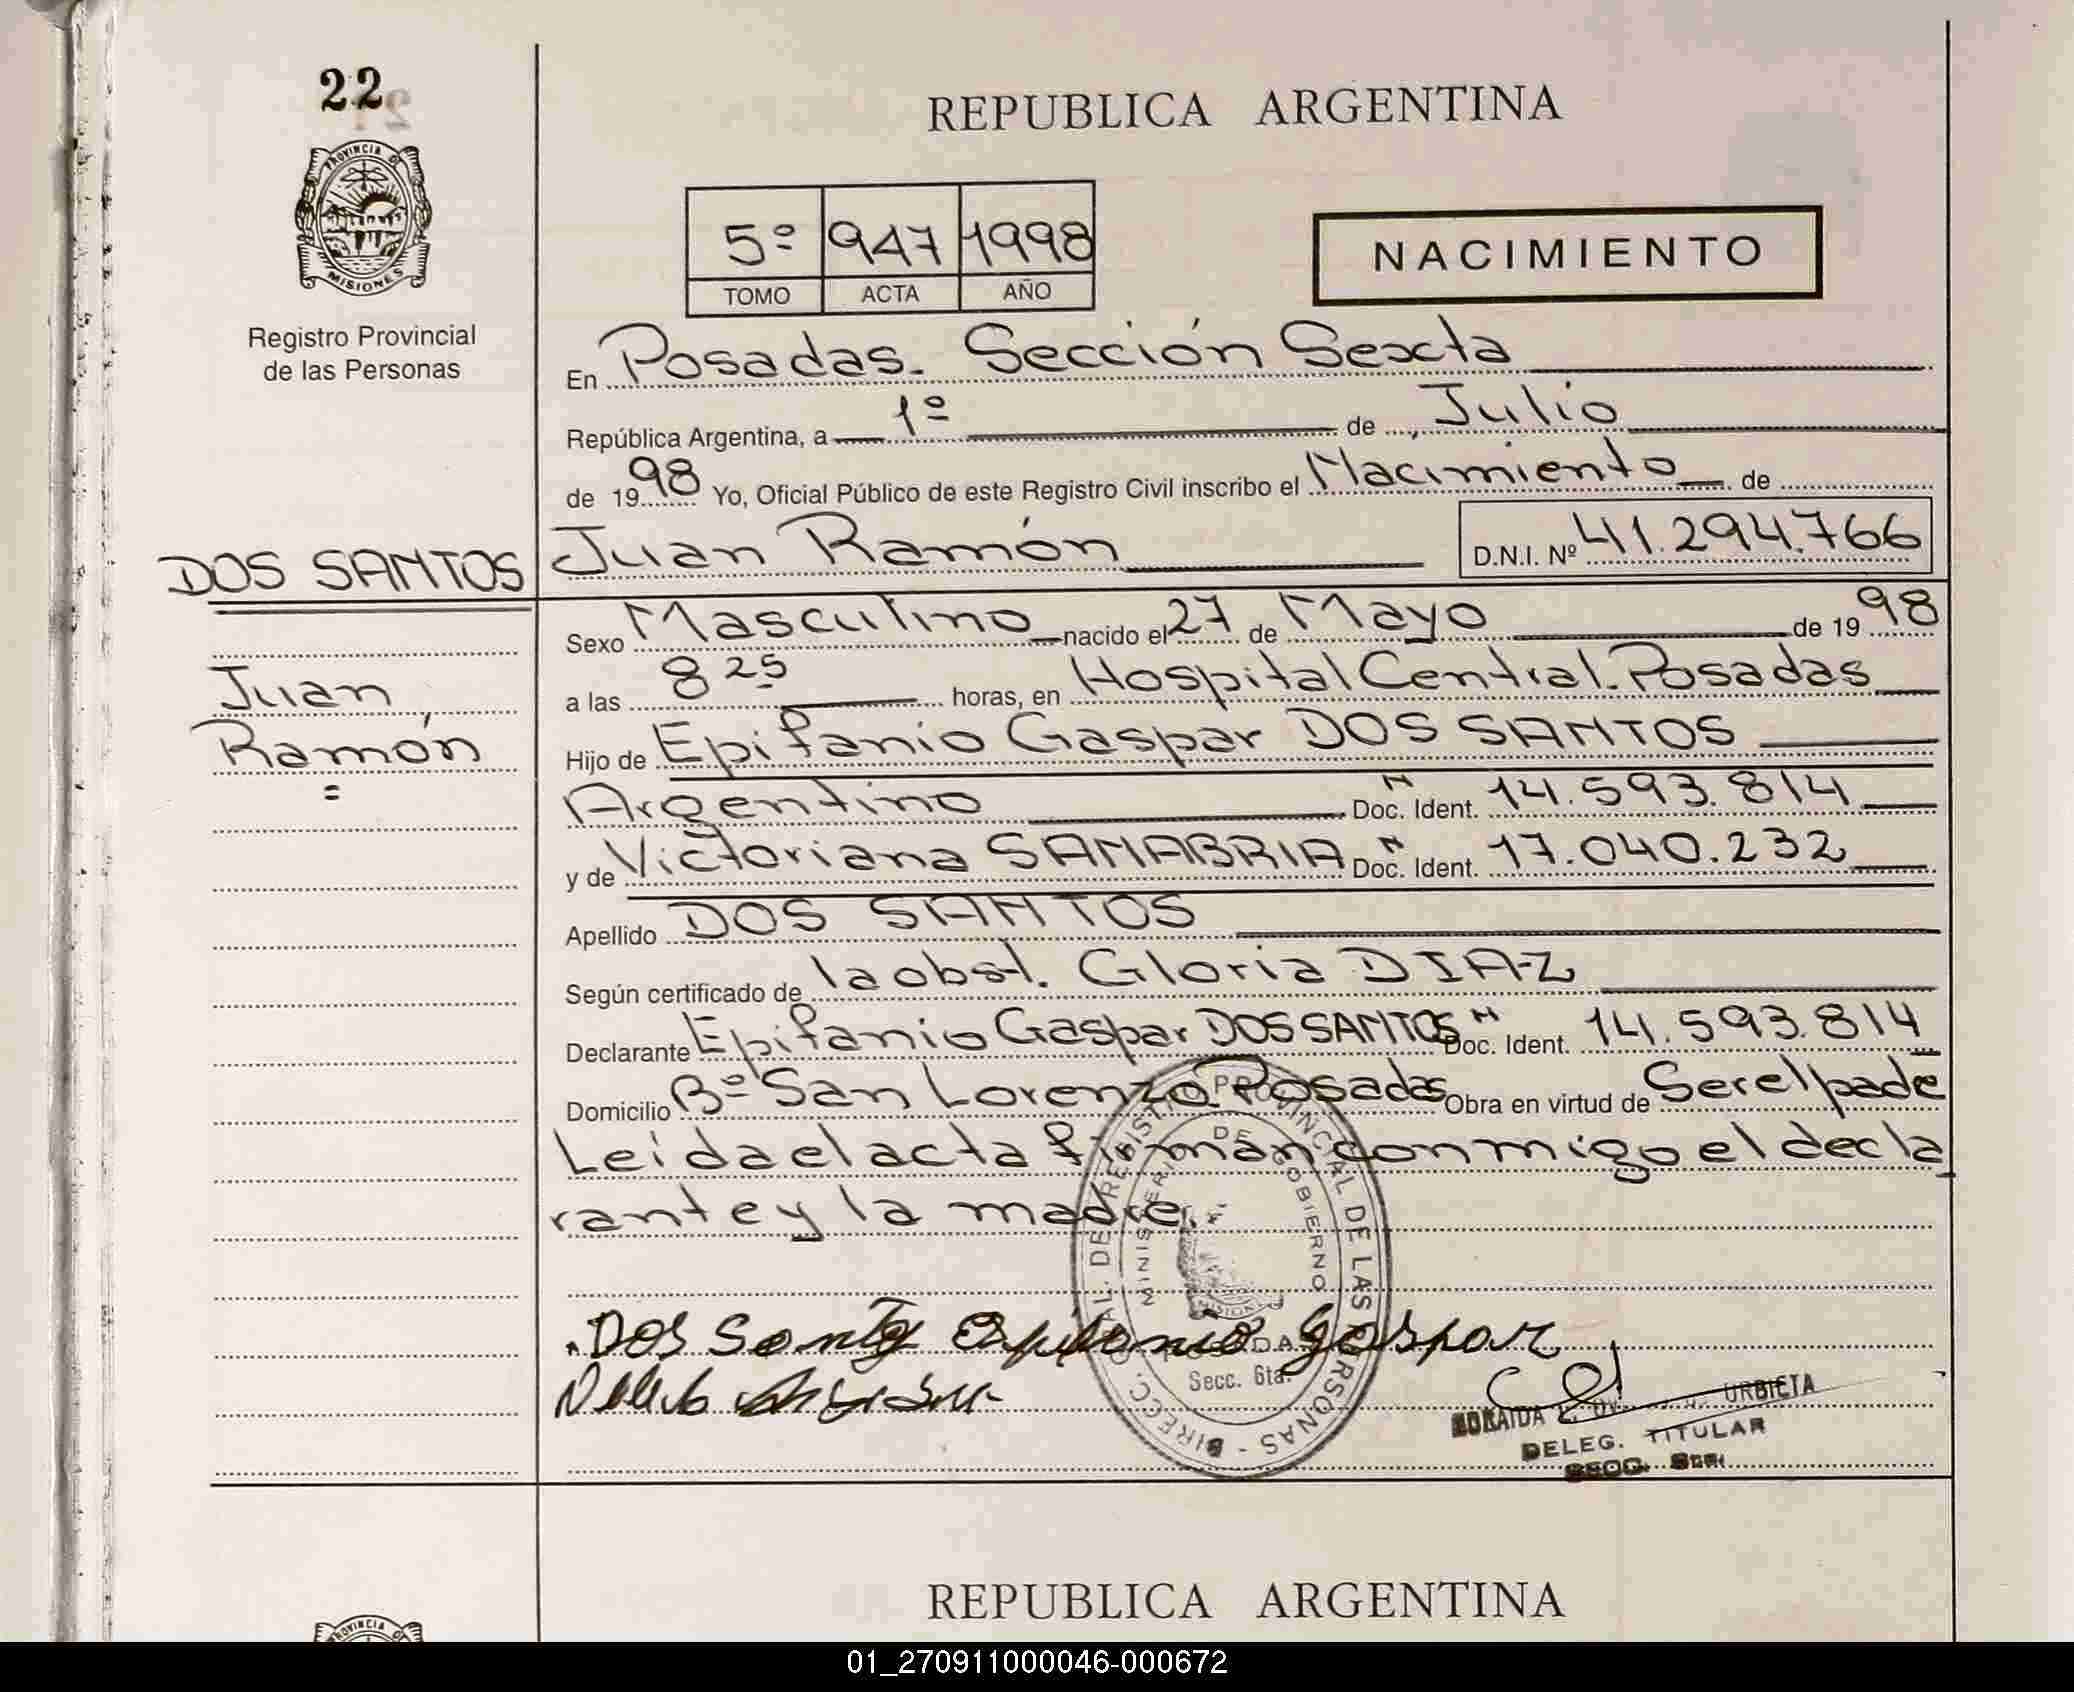 22
PROVINCIA DE
MISIONES
Registro Provincial
de las Personas
REPUBLICA ARGENTINA
5º 947 1998
TOMO ACTA AÑO
NACIMIENTO
En Posadas. Sección Sexta
República Argentina, a 1º de Julio
de 1998 Yo, Oficial Público de este Registro Civil inscribo el Nacimiento de
DOS SANTOS Juan Ramón D.N.I. Nº 41.294.766
Sexo Masculino nacido el 27 de Mayo de 1998
Juan
Ramón
a las 8 25 horas, en Hospital Central. Posadas
Hijo de Epifanio Gaspar DOS SANTOS
Argentino Doc. Ident. N 14.593.814
y de Victoriana SANABRIA Doc. Ident. N 17.040.232
Apellido DOS SANTOS
Según certificado de la obst. Gloria DIAZ
Declarante Epifanio Gaspar DOS SANTOS Doc. Ident. N 14.593.814
Domicilio Bº San Lorenzo. Posadas Obra en virtud de Ser el padre
Leida el acta firman conmigo el decla
rante y la madre.
DIRECC. GRAL. DEL REGISTRO PROVINCIAL DE LAS PERSONAS
MINISTERIO DE GOBIERNO
MISIONES
POSADAS
Secc. 6ta.
Dos Santos Epifanio Gaspar
URBIETA
DELEG. TITULAR
SECC.
REPUBLICA ARGENTINA
PROVINCIA DE
01_270911000046-000672